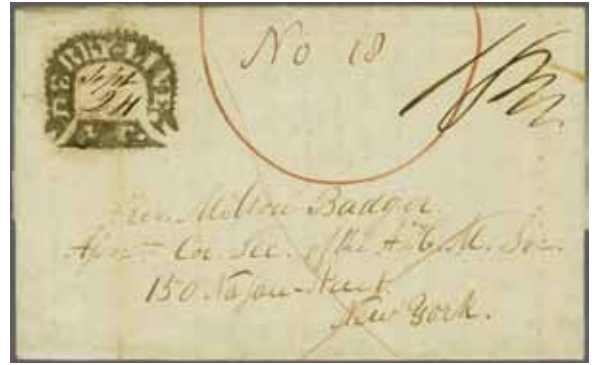 No 18
DERBY LINE
Sept
24
Rev. Milton Badger.
Cor. Sec. of the A. H. M. Soc.
150 Nassau Street
New York.